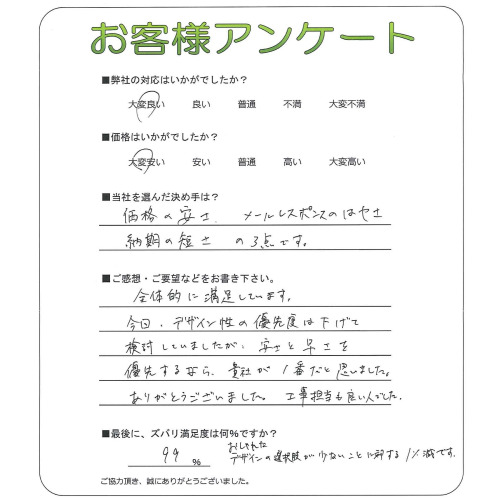 お客様アンケート
■弊社の対応はいかがでしたか?
大変良い 良い 普通 不満 大変不満
■価格はいかがでしたか?
大変安い 安い 普通 高い 大変高い
■当社を選んだ決め手は?
価格の安さ、メールレスポンスのはやさ
納期の短さ の3点です。
■ご感想・ご要望などをお書き下さい。
全体的に満足しています。
今回、デザイン性の優先度は下げて
検討していましたが、安さと早さを
優先するなら、貴社が1番だと思いました。
ありがとうございました。工事担当も良い人でした.
■最後に、ズバリ満足度は何%ですか?
99 %
おしゃれな
デザインの選択肢が少ないことに対する1%減です。
ご協力頂き、誠にありがとうございました。